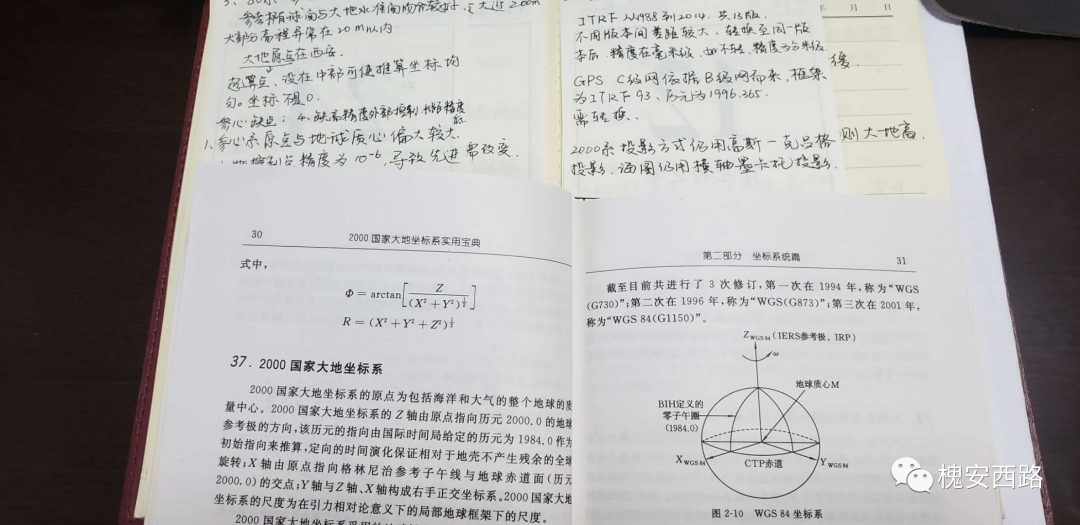 参考椭球面与大地水准面吻合较好,
大部分高程异常在20m以内
大地原点在西安.
起算点、设在中部可使推算坐标均
匀。坐标不是0.
参心缺点: 4、缺高精度外部控制,
1、参心系原点与地球质心偏大较大.
精度为10⁻⁶,导致先进 需改变.
ITRF从1988到2014.共13版.
不同版本间差距较大.转换至同一版
本后.精度在毫米级.如不转.精度为分米级.
GPS C级网依据B级网而来,框架
为ITRF93、历元为1996.365.
需转换.
2000系投影方式仍用高斯-克吕格
投影.海图仍用横轴墨卡托投影.
年 月 日
后
则大地高
30 2000国家大地坐标系实用宝典
式中,
Φ = arctan[Z/(X² + Y²)^½]
R = (X² + Y² + Z²)^½
37. 2000国家大地坐标系
2000国家大地坐标系的原点为包括海洋和大气的整个地球的质
量中心。2000国家大地坐标系的Z轴由原点指向历元2000.0的地球
参考极的方向,该历元的指向由国际时间局给定的历元为1984.0作为
初始指向来推算,定向的时间演化保证相对于地壳不产生残余的全球
旋转;X轴由原点指向格林尼治参考子午线与地球赤道面(历元
2000.0)的交点;Y轴与Z轴、X轴构成右手正交坐标系。2000国家大地
坐标系的尺度为在引力相对论意义下的局部地球框架下的尺度。
第二部分 坐标系统篇 31
截至目前共进行了3次修订,第一次在1994年,称为“WGS
(G730)”;第二次在1996年,称为“WGS(G873)”;第三次在2001年,
称为“WGS 84(G1150)”。
Z WGS 84 (IERS参考极,IRP)
ω
地球质心M
BIH定义的
零子午圈
(1984.0)
X WGS 84
CTP赤道
Y WGS 84
图2-10 WGS 84坐标系
槐安西路